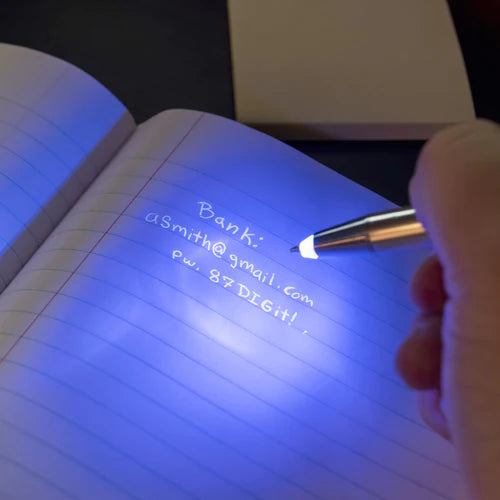 Bank:
asmith@gmail.com
pw. 87DIGit!,